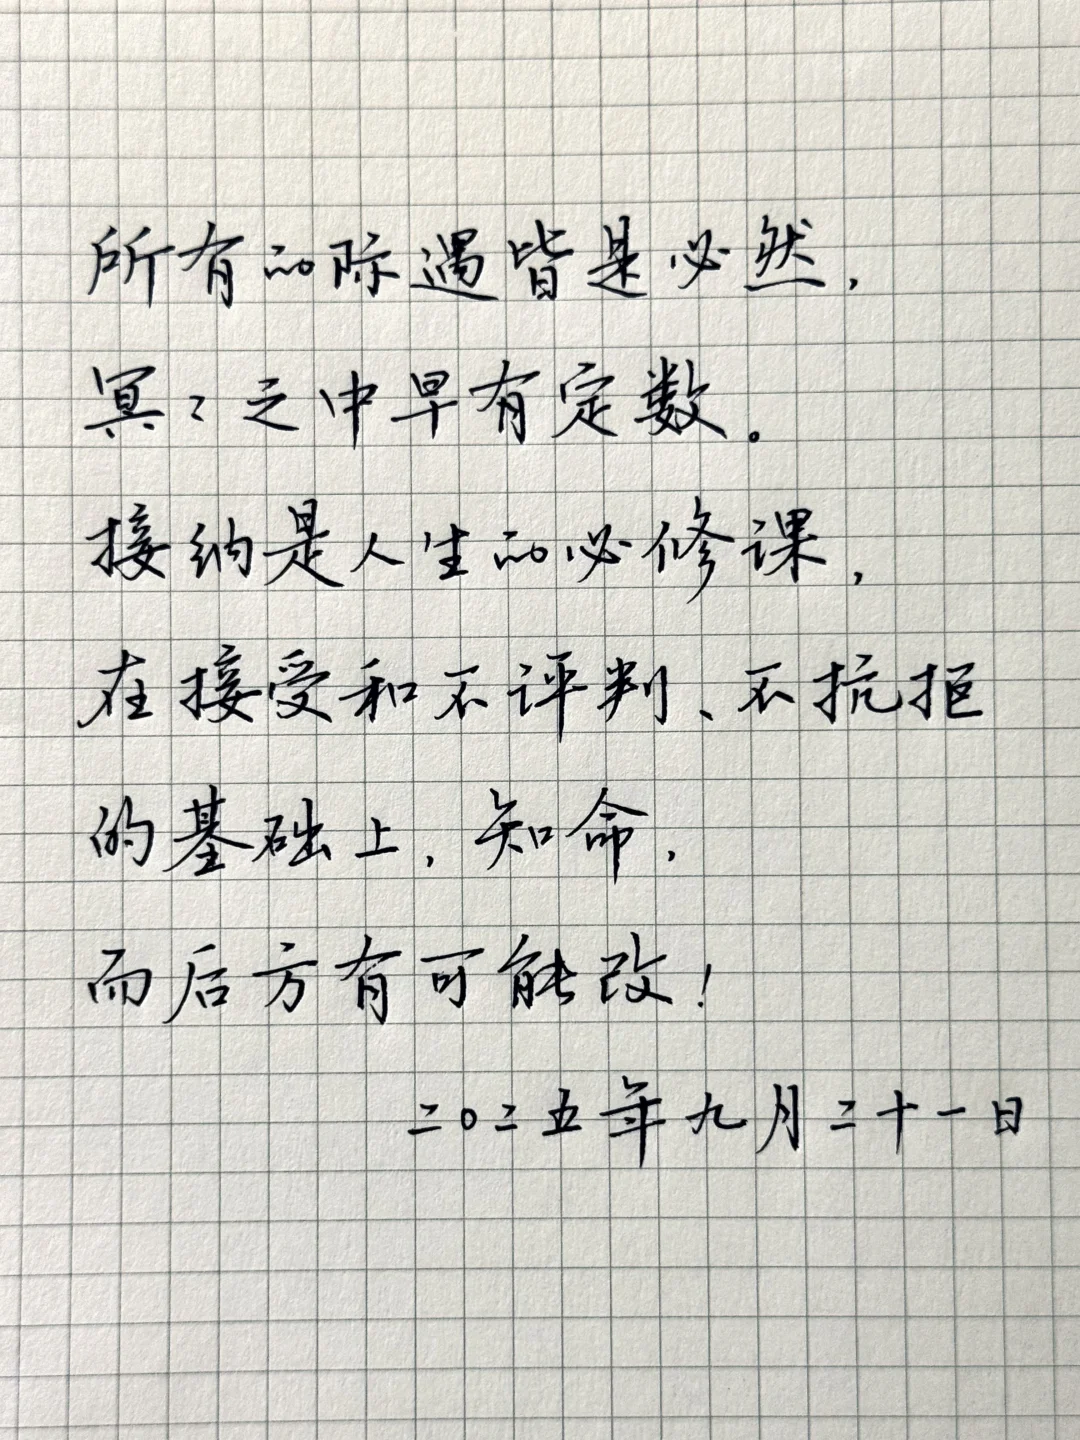 所有的际遇皆是必然,
冥々之中早有定数。
接纳是人生的必修课,
在接受和不评判、不抗拒
的基础上,知命,
而后方有可能改!
二〇二五年九月二十一日